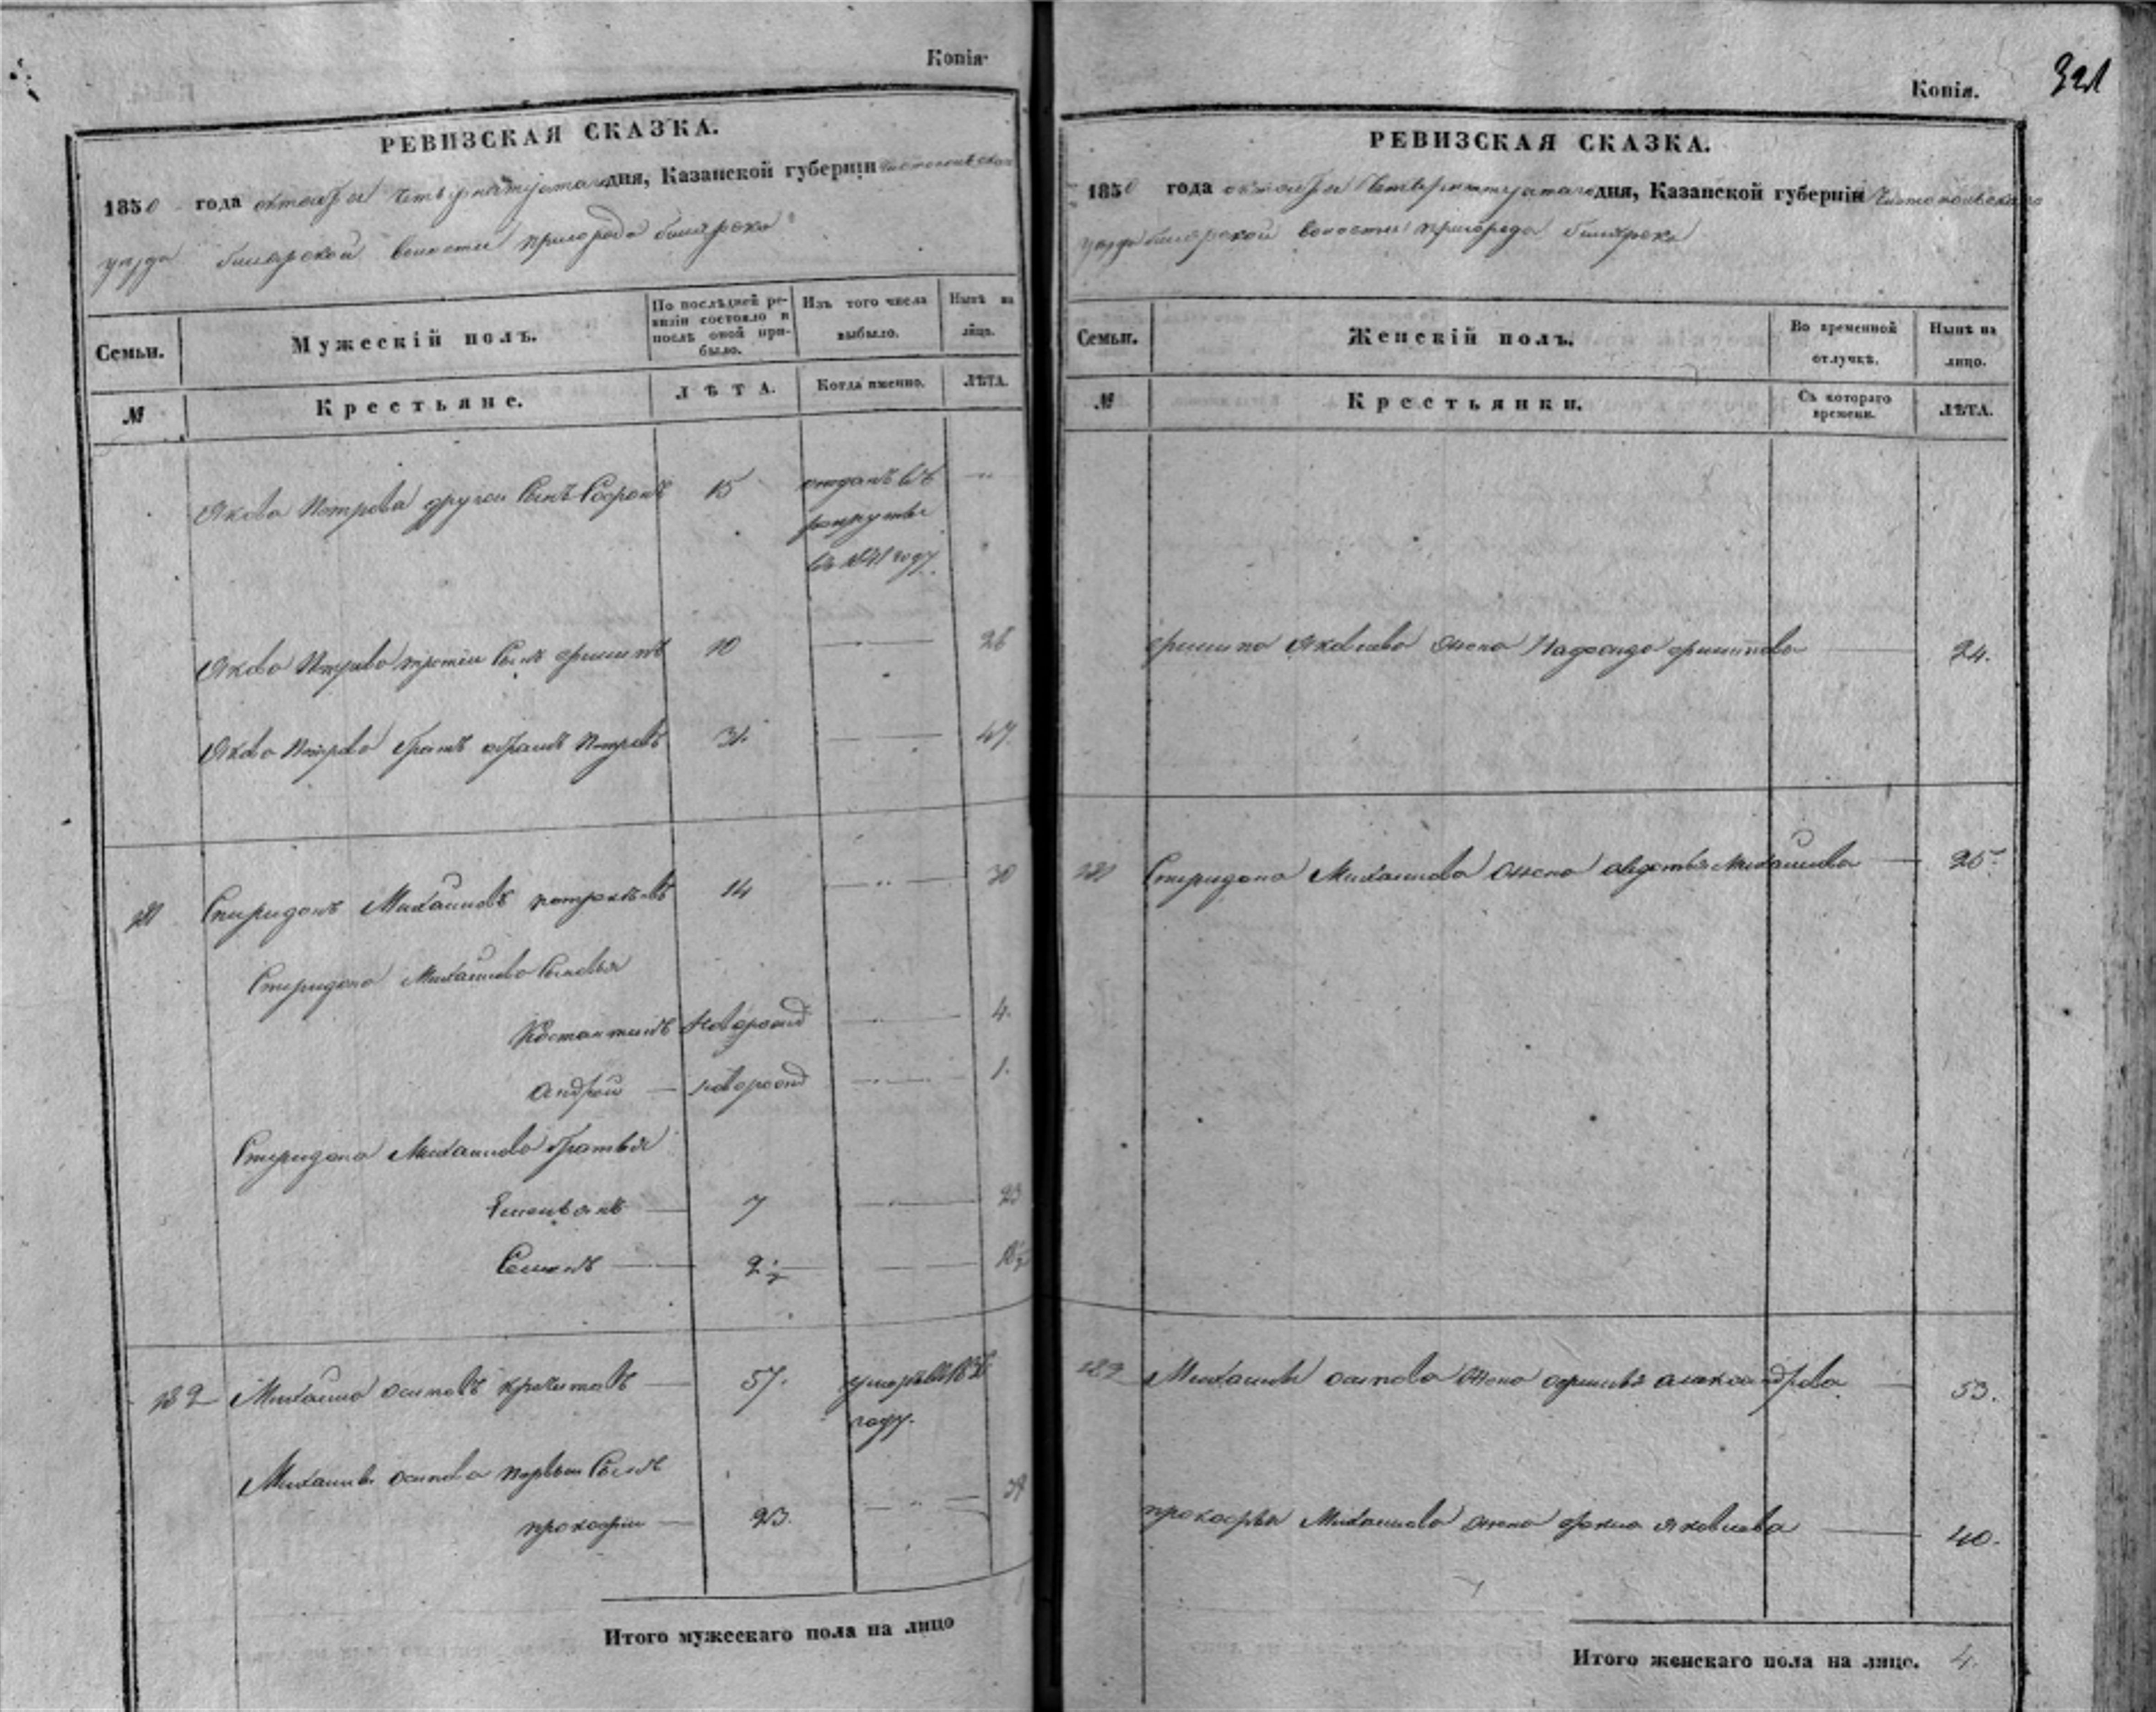 Копія
РЕВИЗСКАЯ СКАЗКА.
1850 года октября четвертагодня, Казанской губерніи Чистопольскаго
уезда билярской волости пригорода билярска
Семьи.
Мужескій полъ.
По послѣдней ре-
визіи состояло и
послѣ оной при-
было.
Изъ того числа
выбыло.
Нынѣ на
лицо.
№
Крестьяне.
ЛѢТА.
Когда именно.
ЛѢТА.
Якова Петрова другой Сынъ Софронъ 15 отданъ въ
рекруты
въ 1841 году.
Якова Петрова третий Сынъ филипъ 10 26
Якова Петрова братъ абрамъ Петровъ 31. 47.
181 Спиридонъ Михайловъ 14 30
Спиридона Михайлова Сыновья
Костантинъ новорожд 4.
андрей новорожд 1.
Спиридона Михайлова братья
Емельянъ 7 23
Семенъ 2½ 18½
182 Михайла осиповъ 57. умеръ въ
году.
Михайлы осипова первый Сынъ
прокофій 23. 39
Итого мужескаго пола на лицо
Копія.
321
РЕВИЗСКАЯ СКАЗКА.
1850 года октября четвертагодня, Казанской губерніи Чистопольскаго
уезда билярской волости пригорода билярска
Семьи.
Женскій полъ.
Во временной
отлучкѣ.
Нынѣ на
лицо.
№
Крестьянки.
Съ котораго
времени.
ЛѢТА.
филипа Яковлева жена Надежда филипова 24.
181 Спиридона Михайлова жена авдотья Михайлова 25.
182 Михайлы осипова жена офимья александрова 53.
прокофья Михайлова жена фекла яковлева 40.
Итого женскаго пола на лицо. 4.